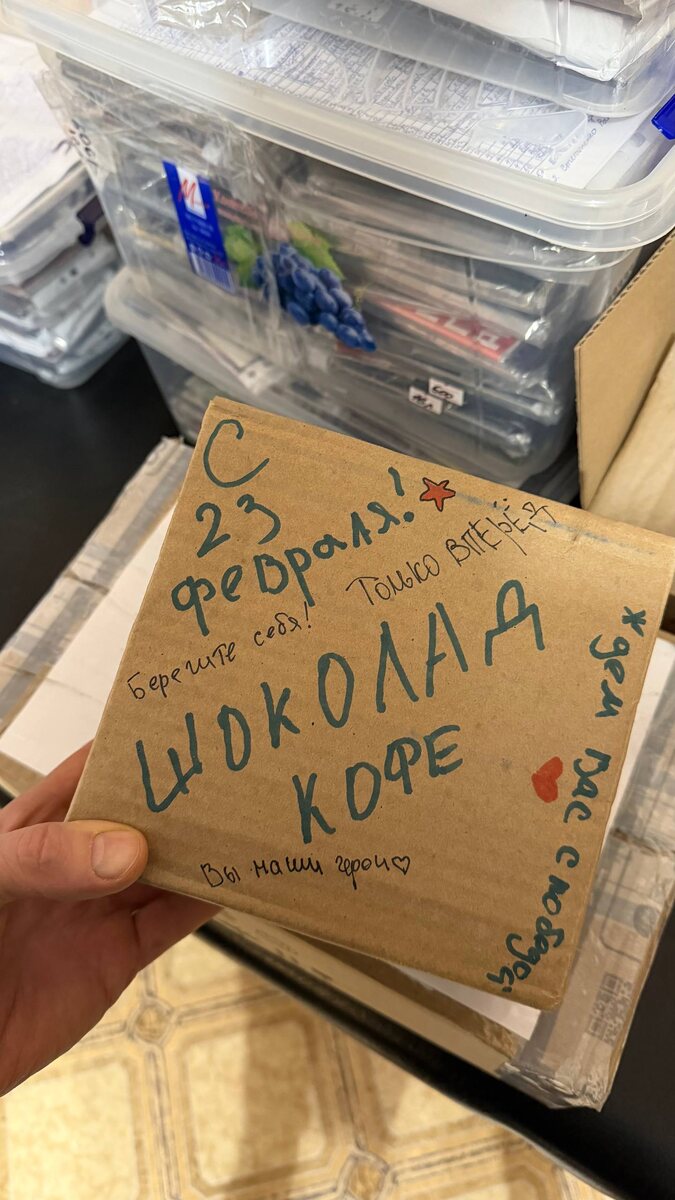 С
23
февраля!
Только ВПЕРЁД
Берегите себя!
ШОКОЛАД
КОФЕ
Вы наши герои
Ждем вас с победой